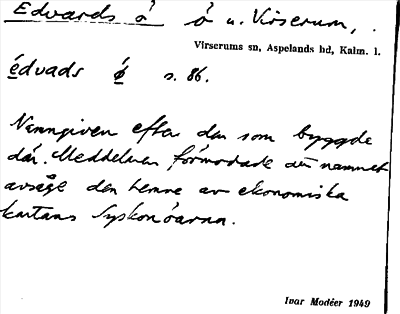 Edvards ö ö u. Virserum,
Virserums sn, Aspelands hd, Kalm. l.
édvads ø s. 86.
Namngiven efter den som byggde
där. Meddelaren förmodade att namnet
avsåge den hemre av ekonomiska
kartans Syskonöarna.
Ivar Modéer 1949